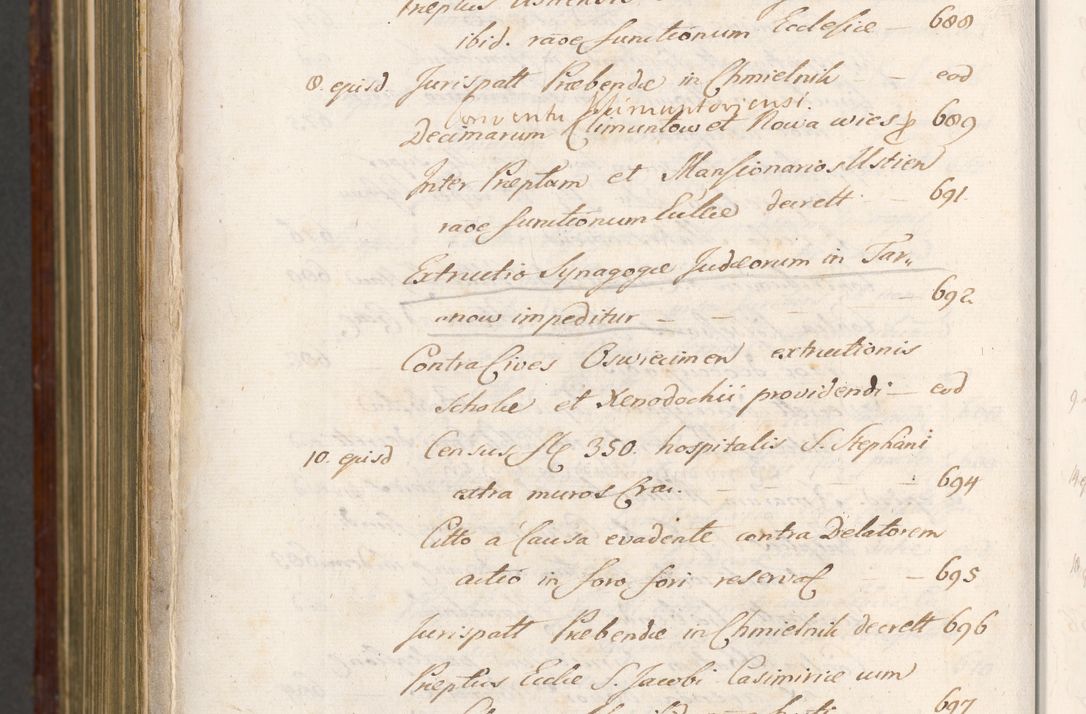 ibid. raõe functionum Ecclesiæ — 688
8. ejusd. Jurispatt Præbendæ in Chmielnik — — eod
Conventu Klimuntoviensi.
Decimarum Climuntow et Nowa wies 689
Inter Præptum et Mansionarios Ustien
raõe functionum Eccliæ decrett — 691.
Extructio Synagogæ Judæorum in Tar„
now impeditur — — — — 692.
Contra Cives Oswiecimen extructionis
Scholæ et Xenodochii providendi — eod
10. ejusd Census 350. hospitalis S. Stephani
extra muros Crac. — — — — 694
Citto à Causa evadente contra Delatorem
actio in foro fori reservat — — 695
Jurispatt Præbendæ in Chmielnik decrett 696
Præptus Ecclæ S. Jacobi Casimiriæ cum
697